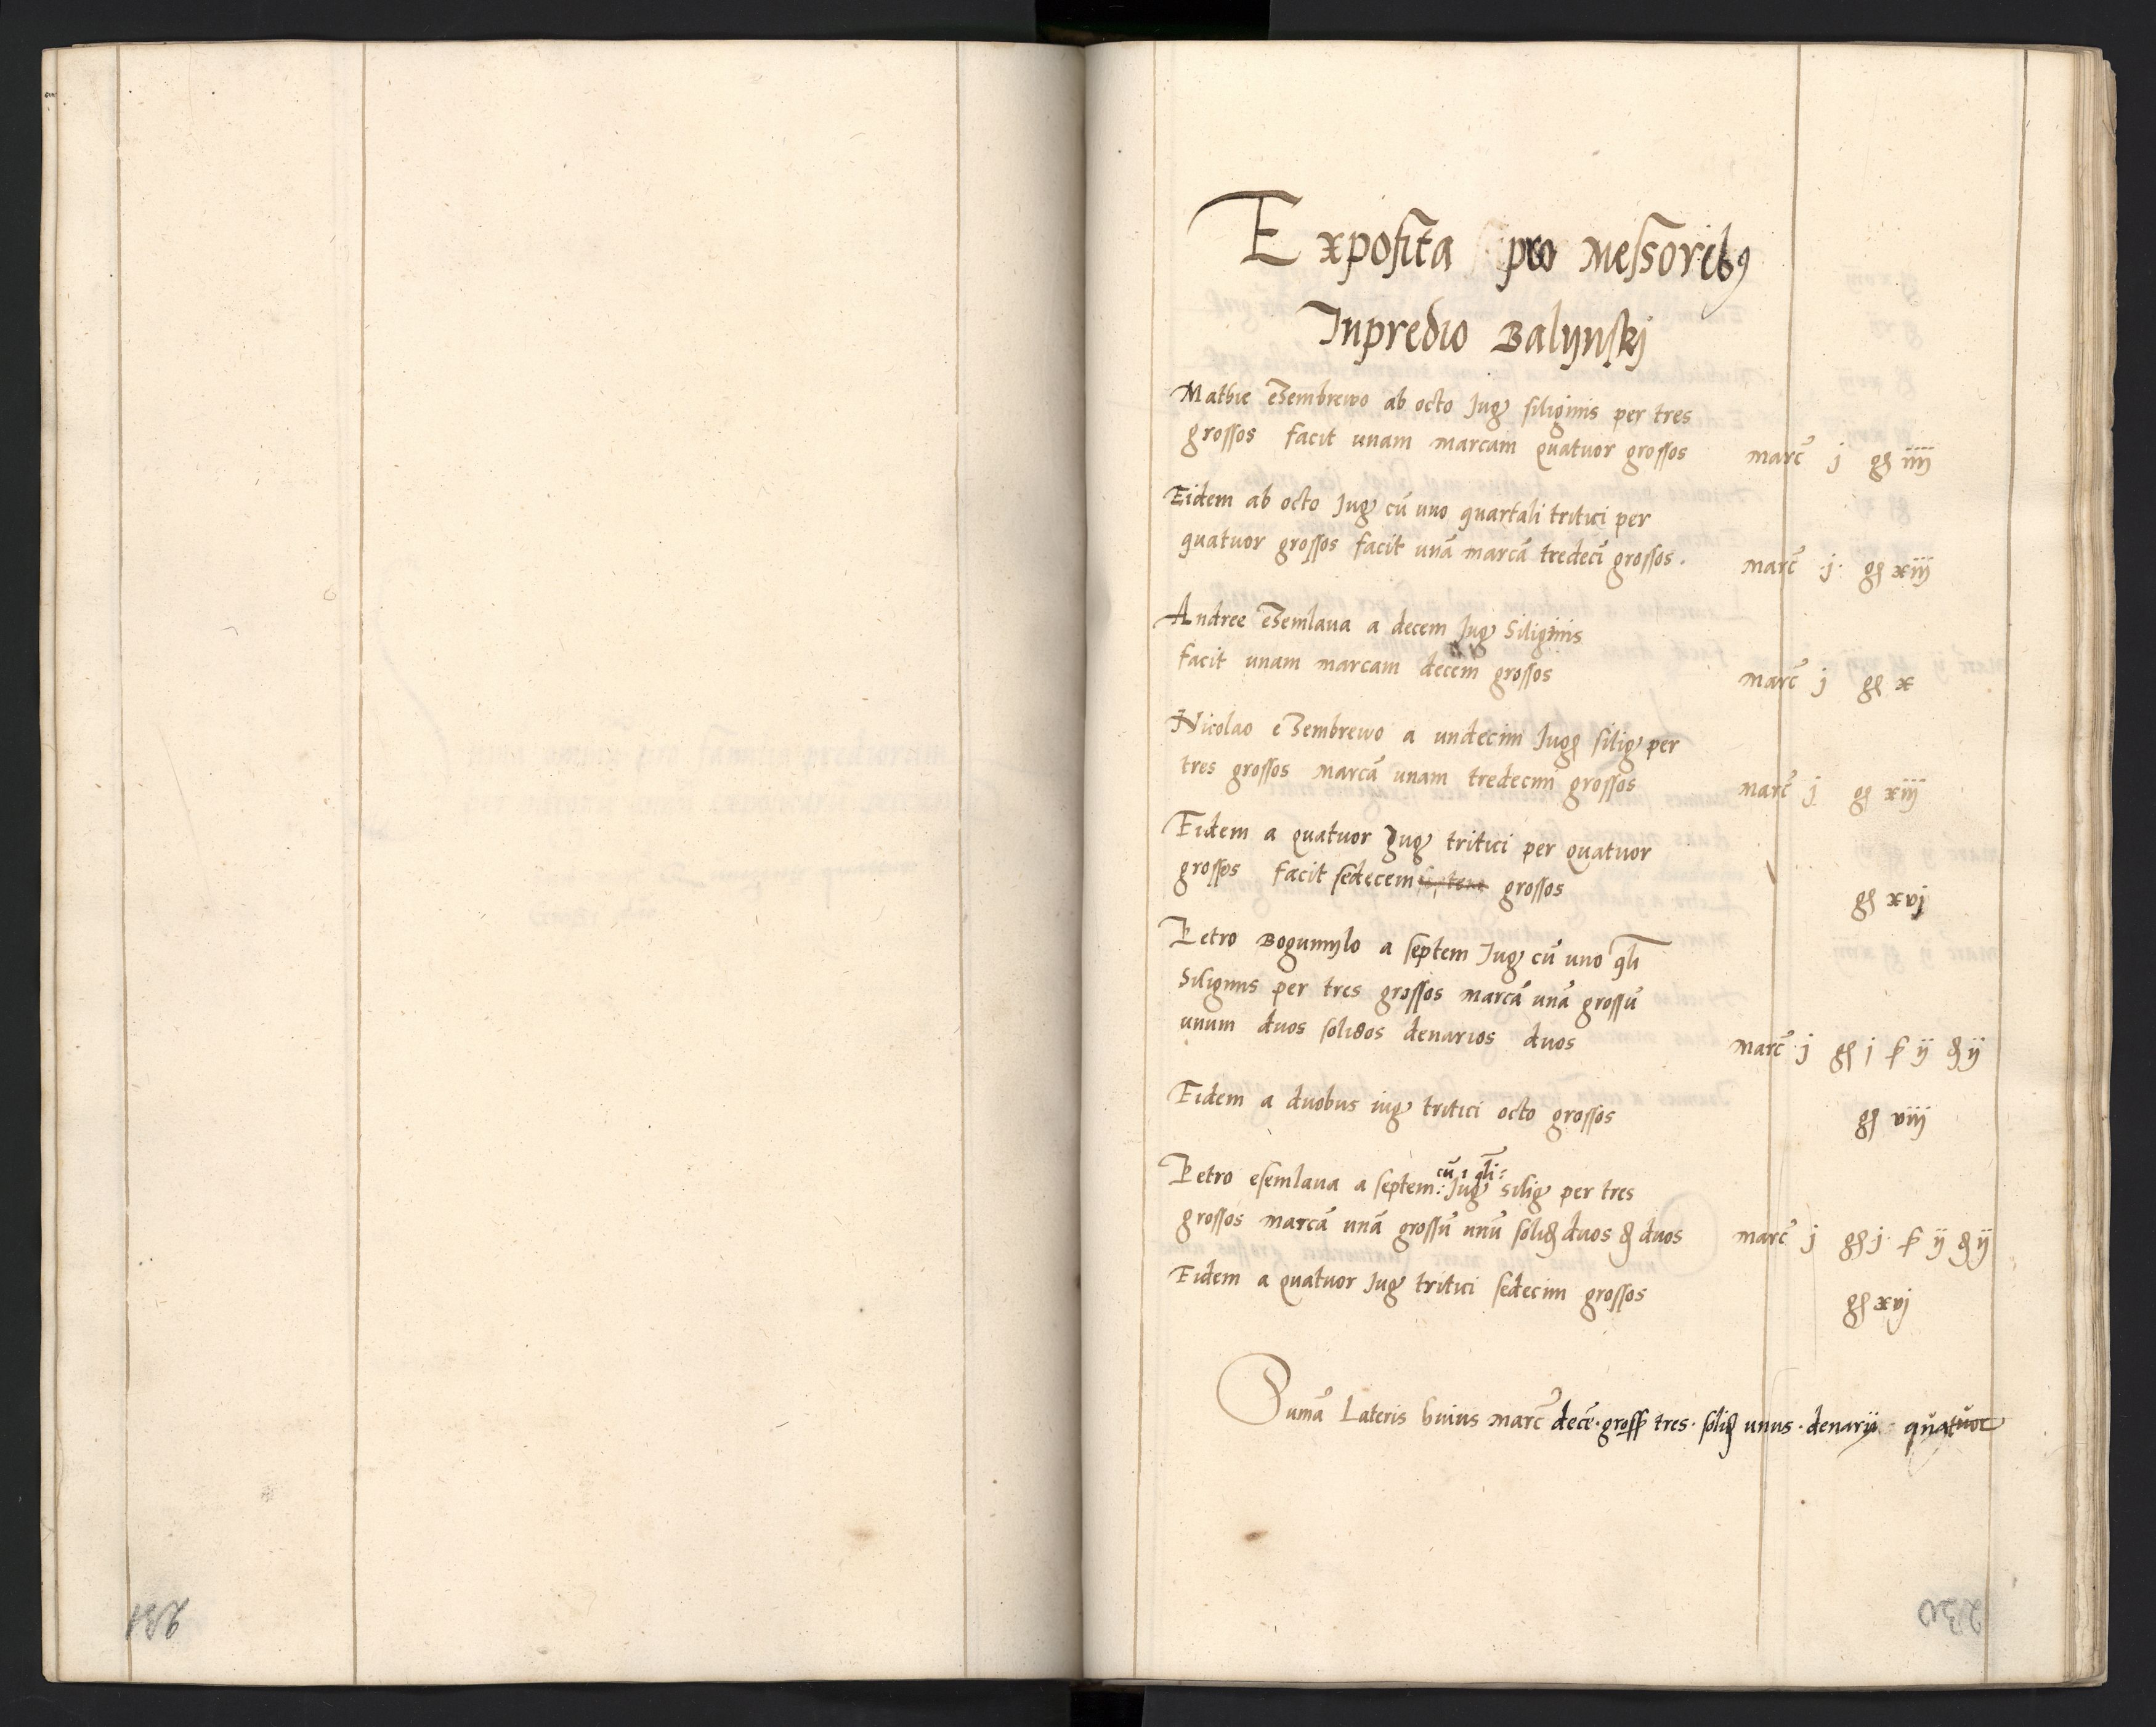 Exposita pro Messoribꝯ
Inpredio Balynskj
Mathie eZembrewo ab octo Jug siliginis per tres
grossos facit unam marcam quatuor grossos marc̃ j gꝭ iiij
Eidem ab octo Jug cū uno quartali tritici per
quatuor grossos facit unā marcā tredeci̅ grossos. marc̃ ·j· gꝭ xiij
Andree eZemlaua a decem Jug Siliginis
facit unam marcam decem grossos marc̃ j gꝭ x
Nicolao eZembrewo a undecim Jugꝭ silig per
tres grossos marcā unam tredecim grossos marc̃ j gꝭ xiij
Eidem a quatuor Jug tritici per quatuor
grossos facit sedecem grossos gꝭ xvj
Petro Bogumylo a septem Jug cū uno qli̅
Siliginis per tres grossos marcā unā grossū
unum duos solidos denarios duos marc̃ j gꝭ j ꝭ ij ꝺ ij
Eidem a duobus iug tritici octo grossos gꝭ viij
cū 1 qli̅:
Petro esemlaua a septem: Jug silig per tres
grossos marcā unā grossū unū soliꝺ duos ꝺ duos marc̃ j gꝭ j ꝭ ij ꝺ ij
Eidem a quatuor Jug tritici sedecim grossos gꝭ xvj
Sumā Lateris huius marc̃ decē· gross tres· soliꝺ unus· denarij quatuor
230